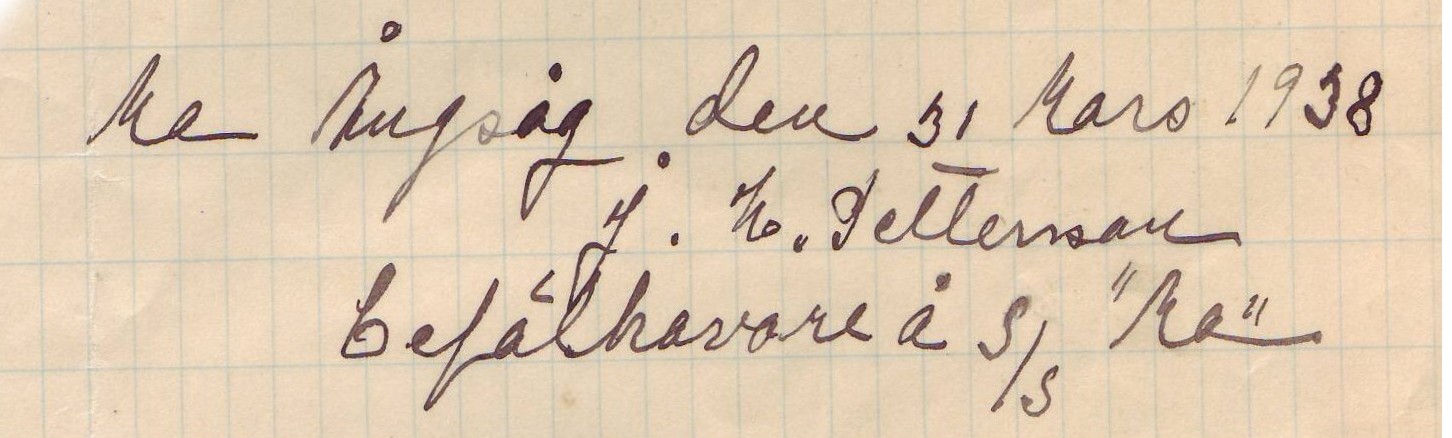 Ma Ångsåg den 31 Mars 1938
J. H. Petterson
befälhavare å S/S "Ma"